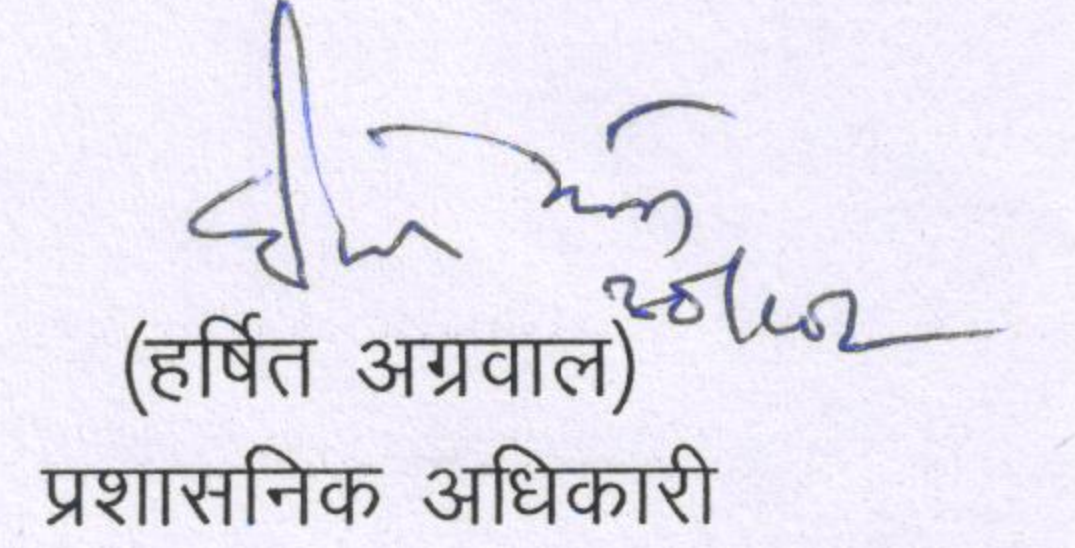 (हर्षित अग्रवाल)
प्रशासनिक अधिकारी